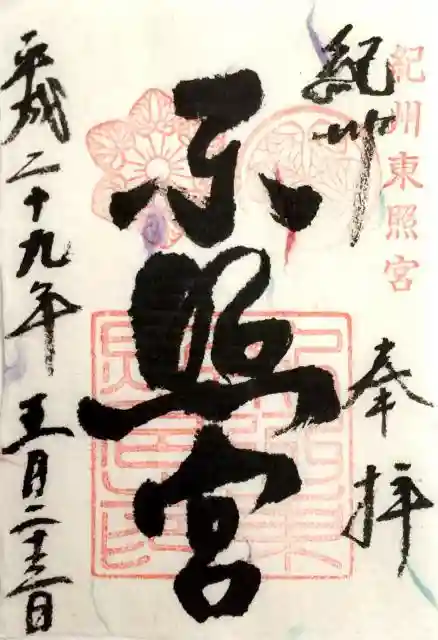 紀州東照宮
紀州
奉拝
东照宮
平成二十九年五月二十三日